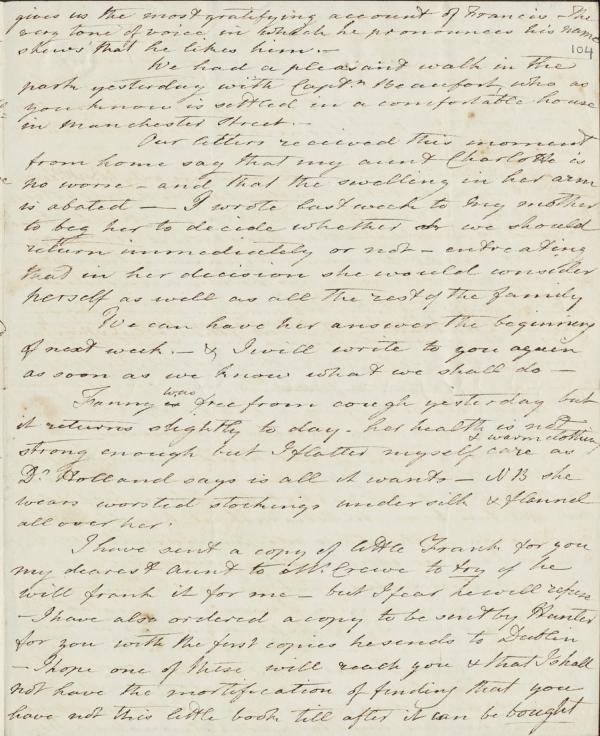 gives us the most gratifying account of Francis - The
very tone of voice in which he pronounces his name
shews that he likes him. -
104
We had a pleasant walk in the
park yesterday with Captn Beaufort, who as
you know is settled in a comfortable house
in Manchester Street. -
Our letters received this moment
from home say that my aunt Charlotte is
no worse - and that the swelling in her arm
is abated - I wrote last week to my mother
to beg her to decide whether we should
return immediately or not - entreating
that in her decision she would consider
herself as well as all the rest of the family
We can have her answer the beginning
of next week. - & I will write to you again
as soon as we know what we shall do -
Fanny is was free from cough yesterday but
it returns slightly to day. her health is not
strong enough but I flatter myself care & warm clothing as
Dr. Holland says is all it wants - NB she
wears worsted stockings under silk & flannel
all over her.
I have sent a copy of little Frank for you
my dearest Aunt to Mr. Crewe to try if he
will frank it for me - but I fear he will refuse
- I have also ordered a copy to be sent by Hunter
for you with the first copies he sends to Dublin
- I hope one of these will reach you & that I shall
not have the mortification of finding that you
have not this little book till after it can be bought